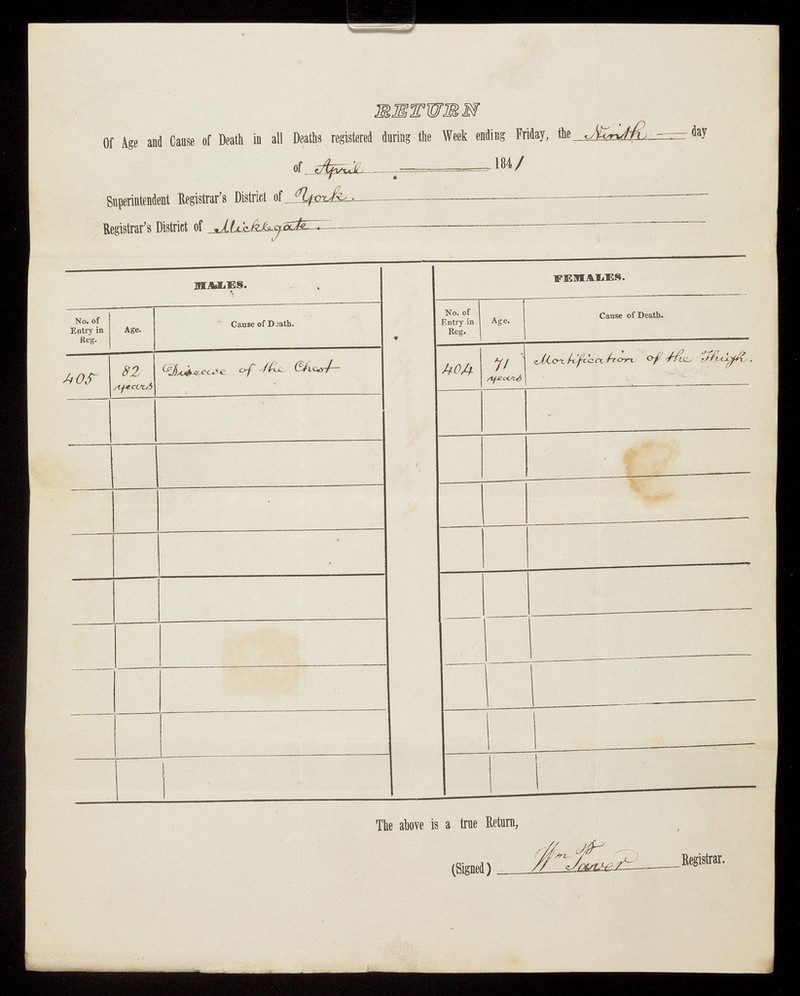 RETURN
Of Age and Cause of Death in all Deaths registered during the Week ending Friday, the Ninth day
of April 1841
Superintendent Registrar's District of York.
Registrar's District of Micklegate.
MALES.
No. of Entry in Reg.
Age.
Cause of Death.
405
82 years
Disease of the Chest
FEMALES.
No. of Entry in Reg.
Age.
Cause of Death.
404
71 years
Mortification of the Thigh.
The above is a true Return,
(Signed) Wm Registrar.